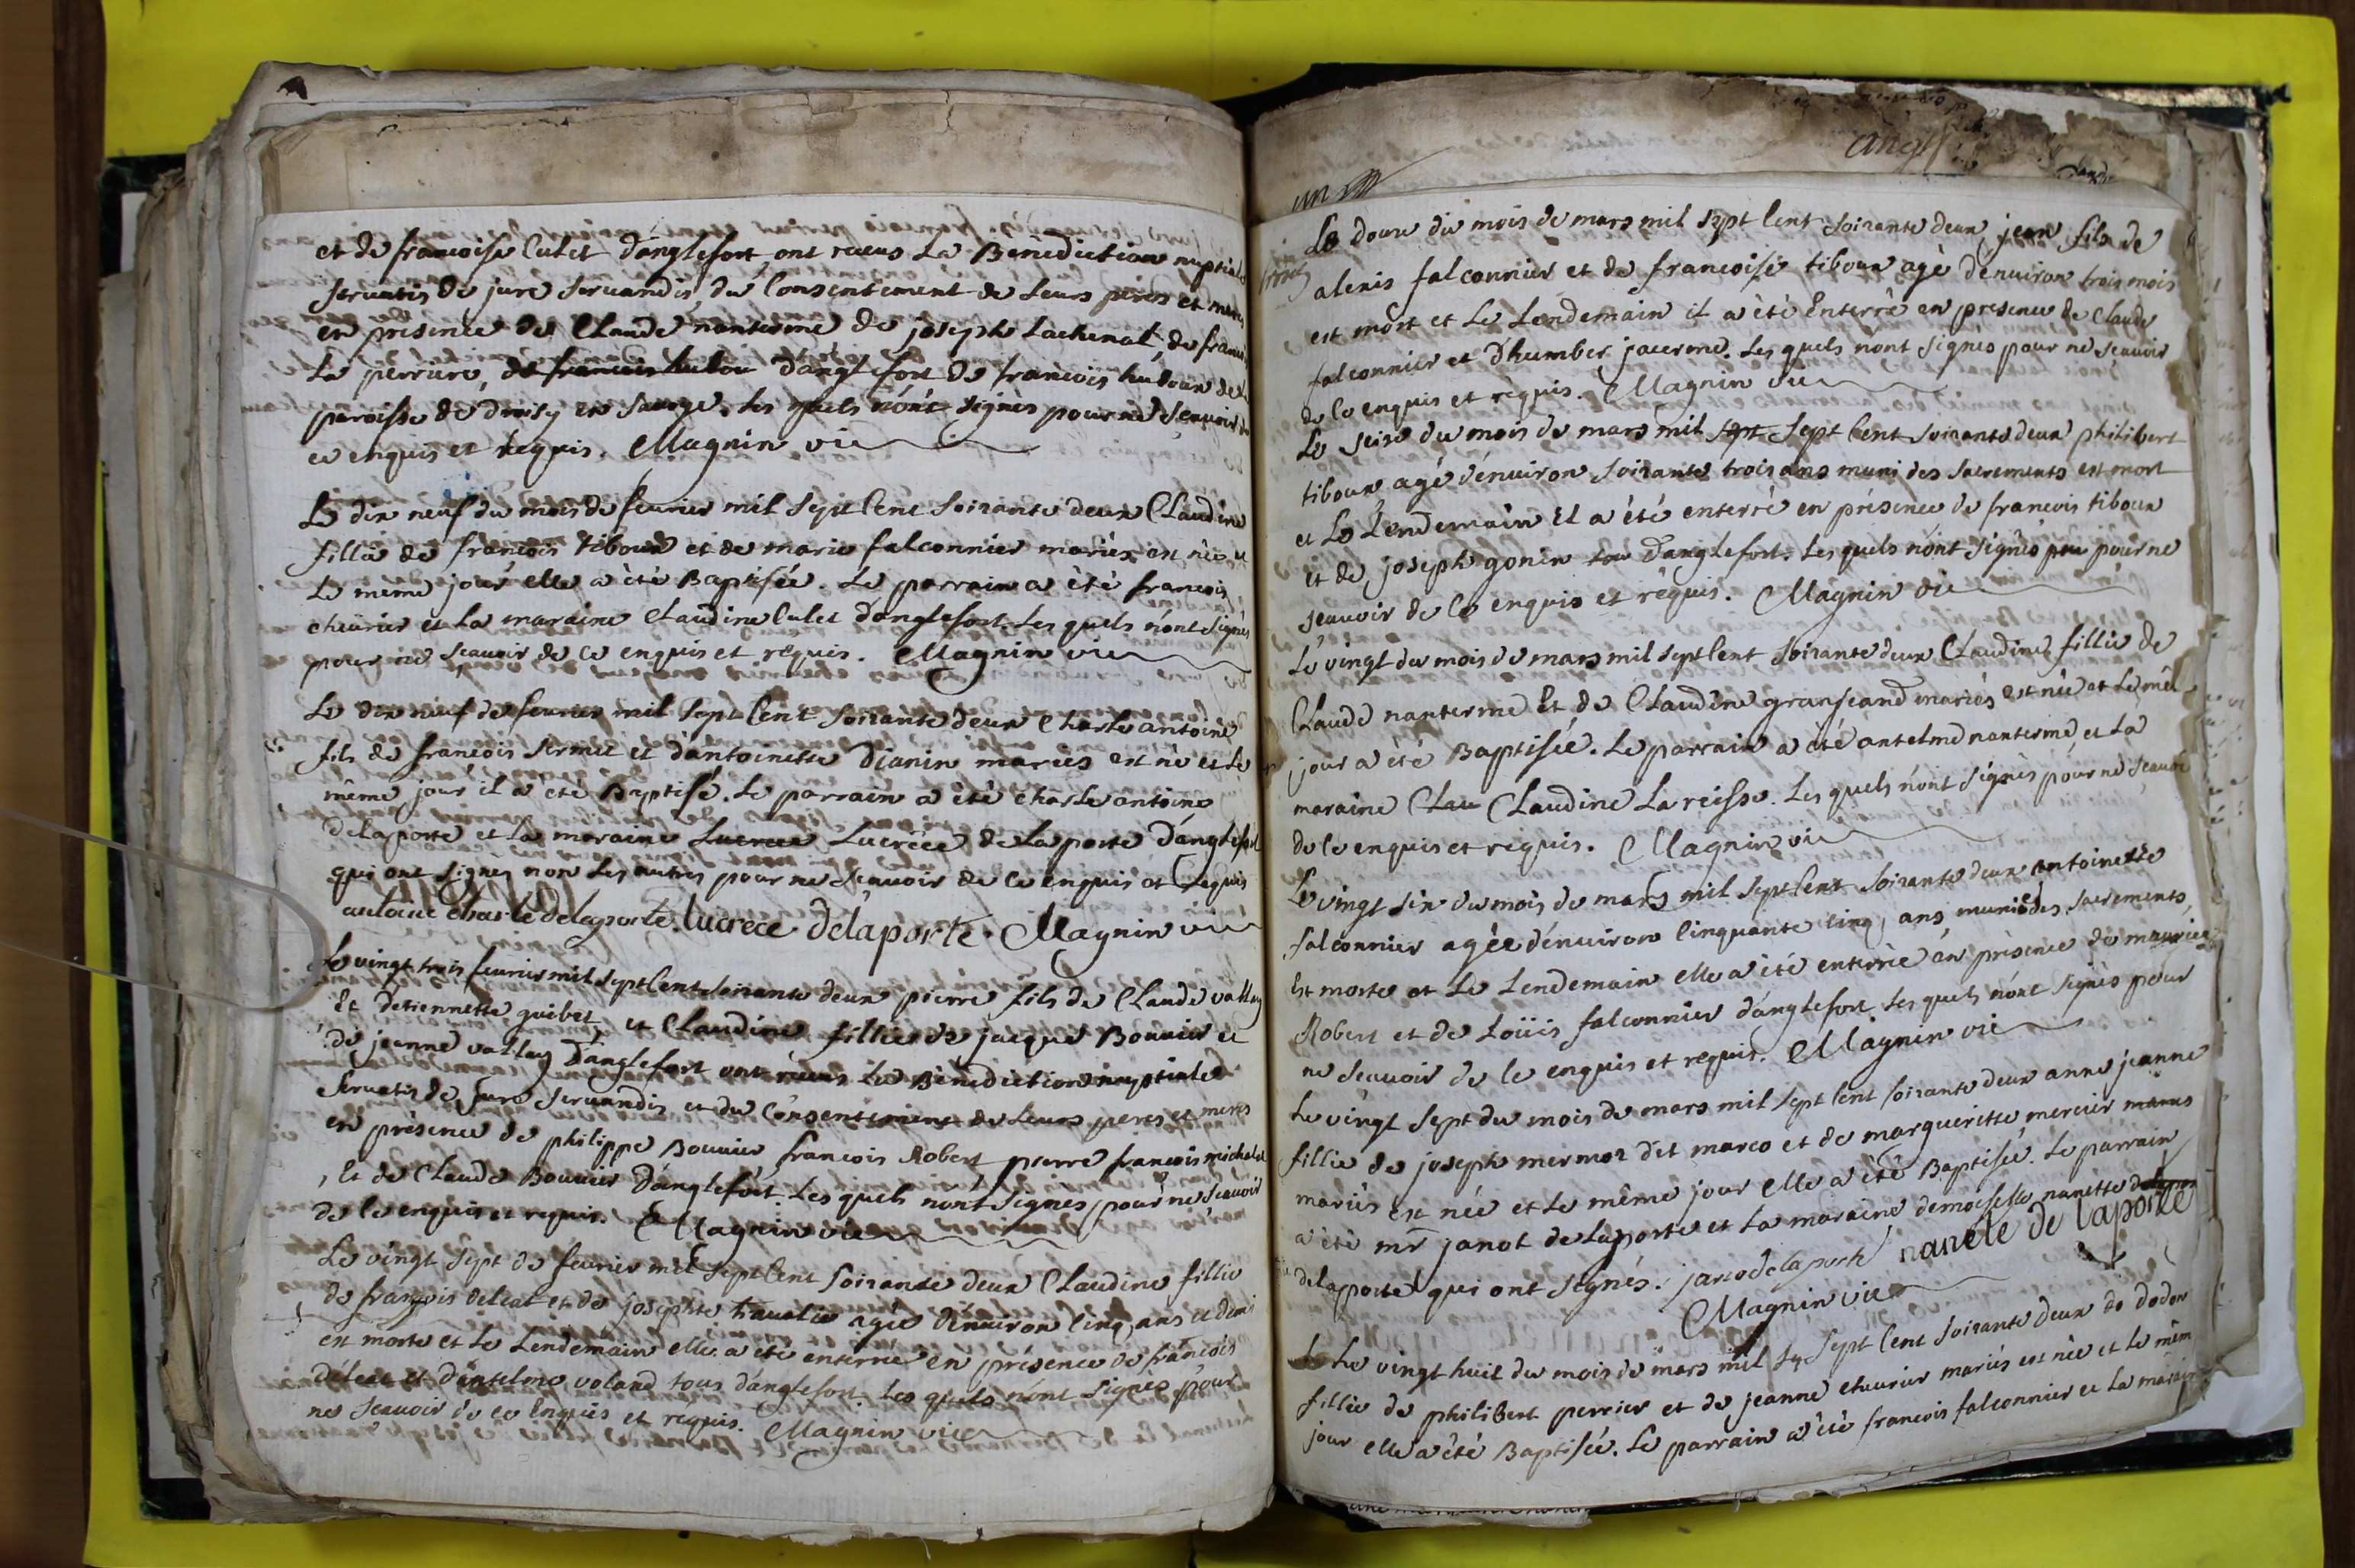 et de francoise Culet d'anglefort ont recus La Benediction nuptiale
servatis de jure servandis, du Consentement de Leurs peres et meres
en presence de Claude nanterme de joseph Lachenal, de francois
La perriere, de francois d'anglefort de francois hudoux de la
paroisse de droisy en savoye. les quels n'ont signés pour ne sçauoir de
ce enquis et requis. Magnin vic
Le dix neuf du mois de feurier mil sept Cent soixante deux Claudine
fillie de francois tiboux et de marie falconnier mariés est née et
Le même jour elle a été Baptisée. Le parrain a été francois
cheurier et La maraine Claudine Culet d'anglefort. Les quels n'ont signés
pour ne sçauoir de ce enquis et requis. Magnin vic
Le dix neuf de feurier mil sept Cent soixante deux Charle antoine
fils de francois sermet et d'antoinette Dianin mariés est né et Le
même jour il a été Baptisé. Le parrain a été charle antoine
delaporte et La moraine Lucrece Lucréce de Laporte d'anglefort
qui ont signes non Les autres pour ne sçauoir de ce enquis et requis
antoine charle delaporte. lucrece delaporte. Magnin vic
Le vingt trois feurier mil sept Cent soixante deux pierre fils de Claude vallay
Et detiennette guibet, et Claudine fillie de jacque Bouuier et
de jeanne vallay d'anglefort ont recus La Bénédiction nuptiale
servatis de jure servandis et du Consentement de Leurs peres et meres
en présence de philippe Bouuier francois Robert pierre francois michelot
Et de Claude Bouuier d'anglefort. Les quels n'ont signes pour ne sçauoir
de Ce enquis et requis. Magnin vic
Le vingt sept de feurier mil sept Cent soixante deux Claudine fillie
de francois deleat et de josephte agée d'enuiron Cinq ans et demi
est morte et Le Lendemain elle a été enterrée en présence de francois
déleat et d'antelme voland tous d'anglefort. Les quels n'ont signés pour
ne sçauoir de ce Enquis et requis. Magnin vic
ang
Le douze du mois de mars mil sept Cent soixante deux jean fils de
alexis falconnier et de francoise tiboux agé d'enuiron trois mois
est mort et Le Lendemain il a été Enterré en presence de Claude
falconnier et d'humber jacerme. Les quels n'ont signés pour ne sçauoir
de Ce enquis et requis. Magnin vic
Le seize du mois de mars mil sept sept Cent soixante deux philibert
tiboux agé d'enuiron soixante trois ans muni des sacrements est mort
et Le Lendemain Il a été enterré en présence de francois tiboux
et de joseph gonin tou d'anglefort. Les quels n'ont signés pou pour ne
sçauoir de Ce enquis et requis. Magnin vic
Le vingt du mois de mars mil sept Cent soixante deux Claudine fillie de
Claude nanterme Et de Claudine granjeand mariés est née et Le mêl
jour a été Baptisée. Le parrain a été antelme nanterme, et La
maraine Clau Claudine Lareisse. Les quels n'ont signés pour ne sçauoir
de Ce enquis et requis. Magnin vic
Le vingt six du mois de mars mil sept Cent soixante deux antoinette
falconnier agée d'enuiron Cinquante Cinq ans munie des sacrements,
Est morte et Le Lendemain elle a été enterrée en présence de maurice
Robert et de Loüis falconnier d'anglefort Les quels n'ont signés pour
ne sçauoir de Ce enquis et requis. Magnin vic
Le vingt sept du mois de mars mil sept Cent soixante deux anne jeanne
fillie de joseph mermoz dit marco et de margueritte mercier
mariés est née et Le même jour elle a été Baptisée. Le parrain
a été mr janot de Laporte et La maraine demoiselle nanette
delaporte qui ont signés. janodelaporte nanete de laporte
Magnin vic
Le vingt huit du mois de mars mil sept Cent soixante deux
fillie de philibert perrier et de jeanne cheurier mariés est née et Le mêm
jour elle a été Baptisée. Le parrain a été francois falconnier et La marain